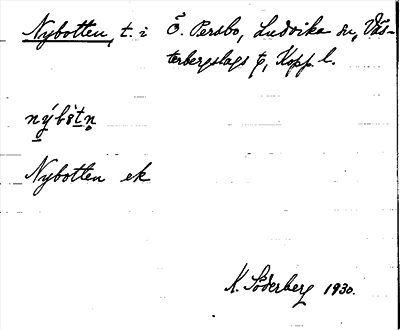 Nybotten, t. i Ö. Persbo, Ludvika sn, Väs-
terbergslags t, Kopp. l.
nýbòtn
Nybotten ek
K. Söderberg 1930.